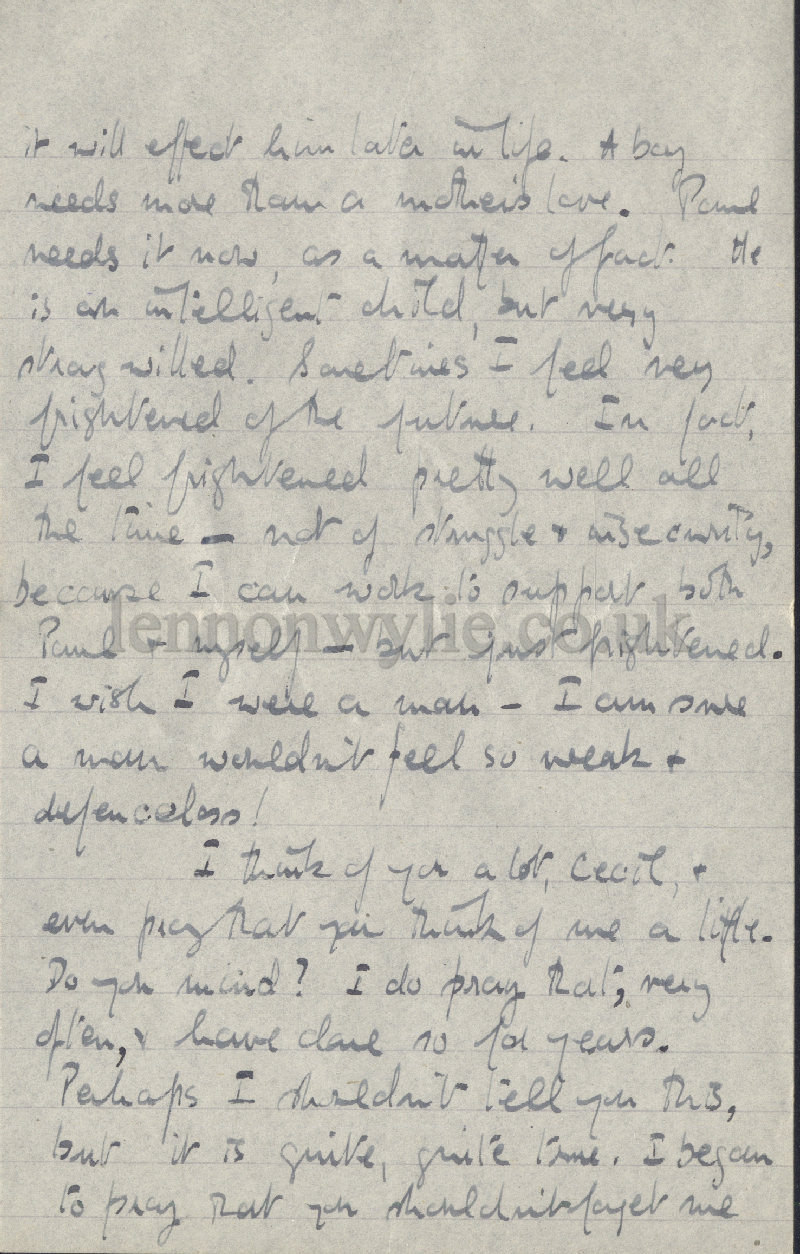 it will effect him later in life. A boy
needs more than a mother's love. Paul
needs it now, as a matter of fact. He
is an intelligent child, but very
strong willed. Sometimes I feel very
frightened of the future. In fact,
I feel frightened pretty well all
the time — not of struggle & insecurity,
because I can work to support both
lennonwylie.co.uk
Paul & myself — but just frightened.
I wish I were a man - I am sure
a man wouldn't feel so weak &
defenceless!
I think of you a lot, Cecil, &
even pray that you think of me a little.
Do you mind? I do pray that, very
often, & have done so for years.
Perhaps I shouldn't tell you this,
but it is quite, quite true. I began
to pray that you shouldn't forget me